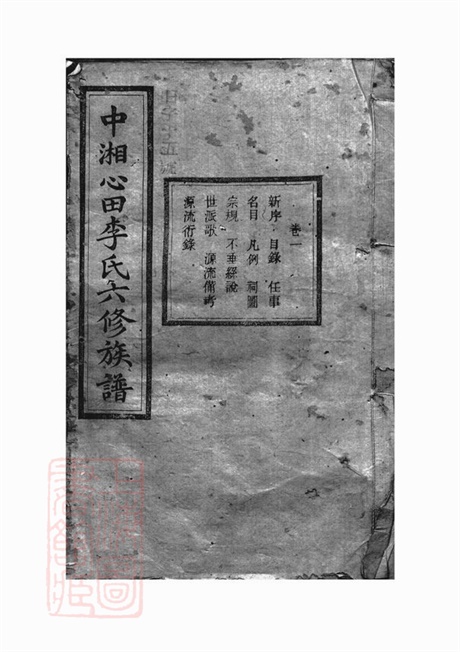 中湘心田李氏六修族譜
卷一
新序 目錄 任事
名目 凡例 祠圖
宗規 不垂繇說
世派歌 源流備考
源流衍錄